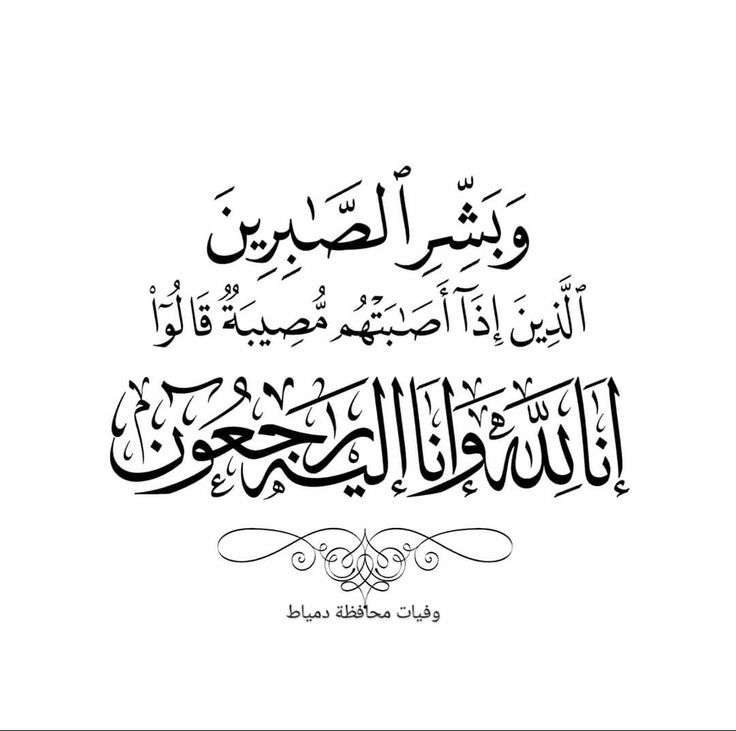 وَبَشِّرِ ٱلصَّـٰبِرِينَ
ٱلَّذِينَ إِذَآ أَصَـٰبَتْهُم مُّصِيبَةٌ قَالُوٓا۟
إنا لله وإنا إليه راجعون
وفيات محافظة دمياط